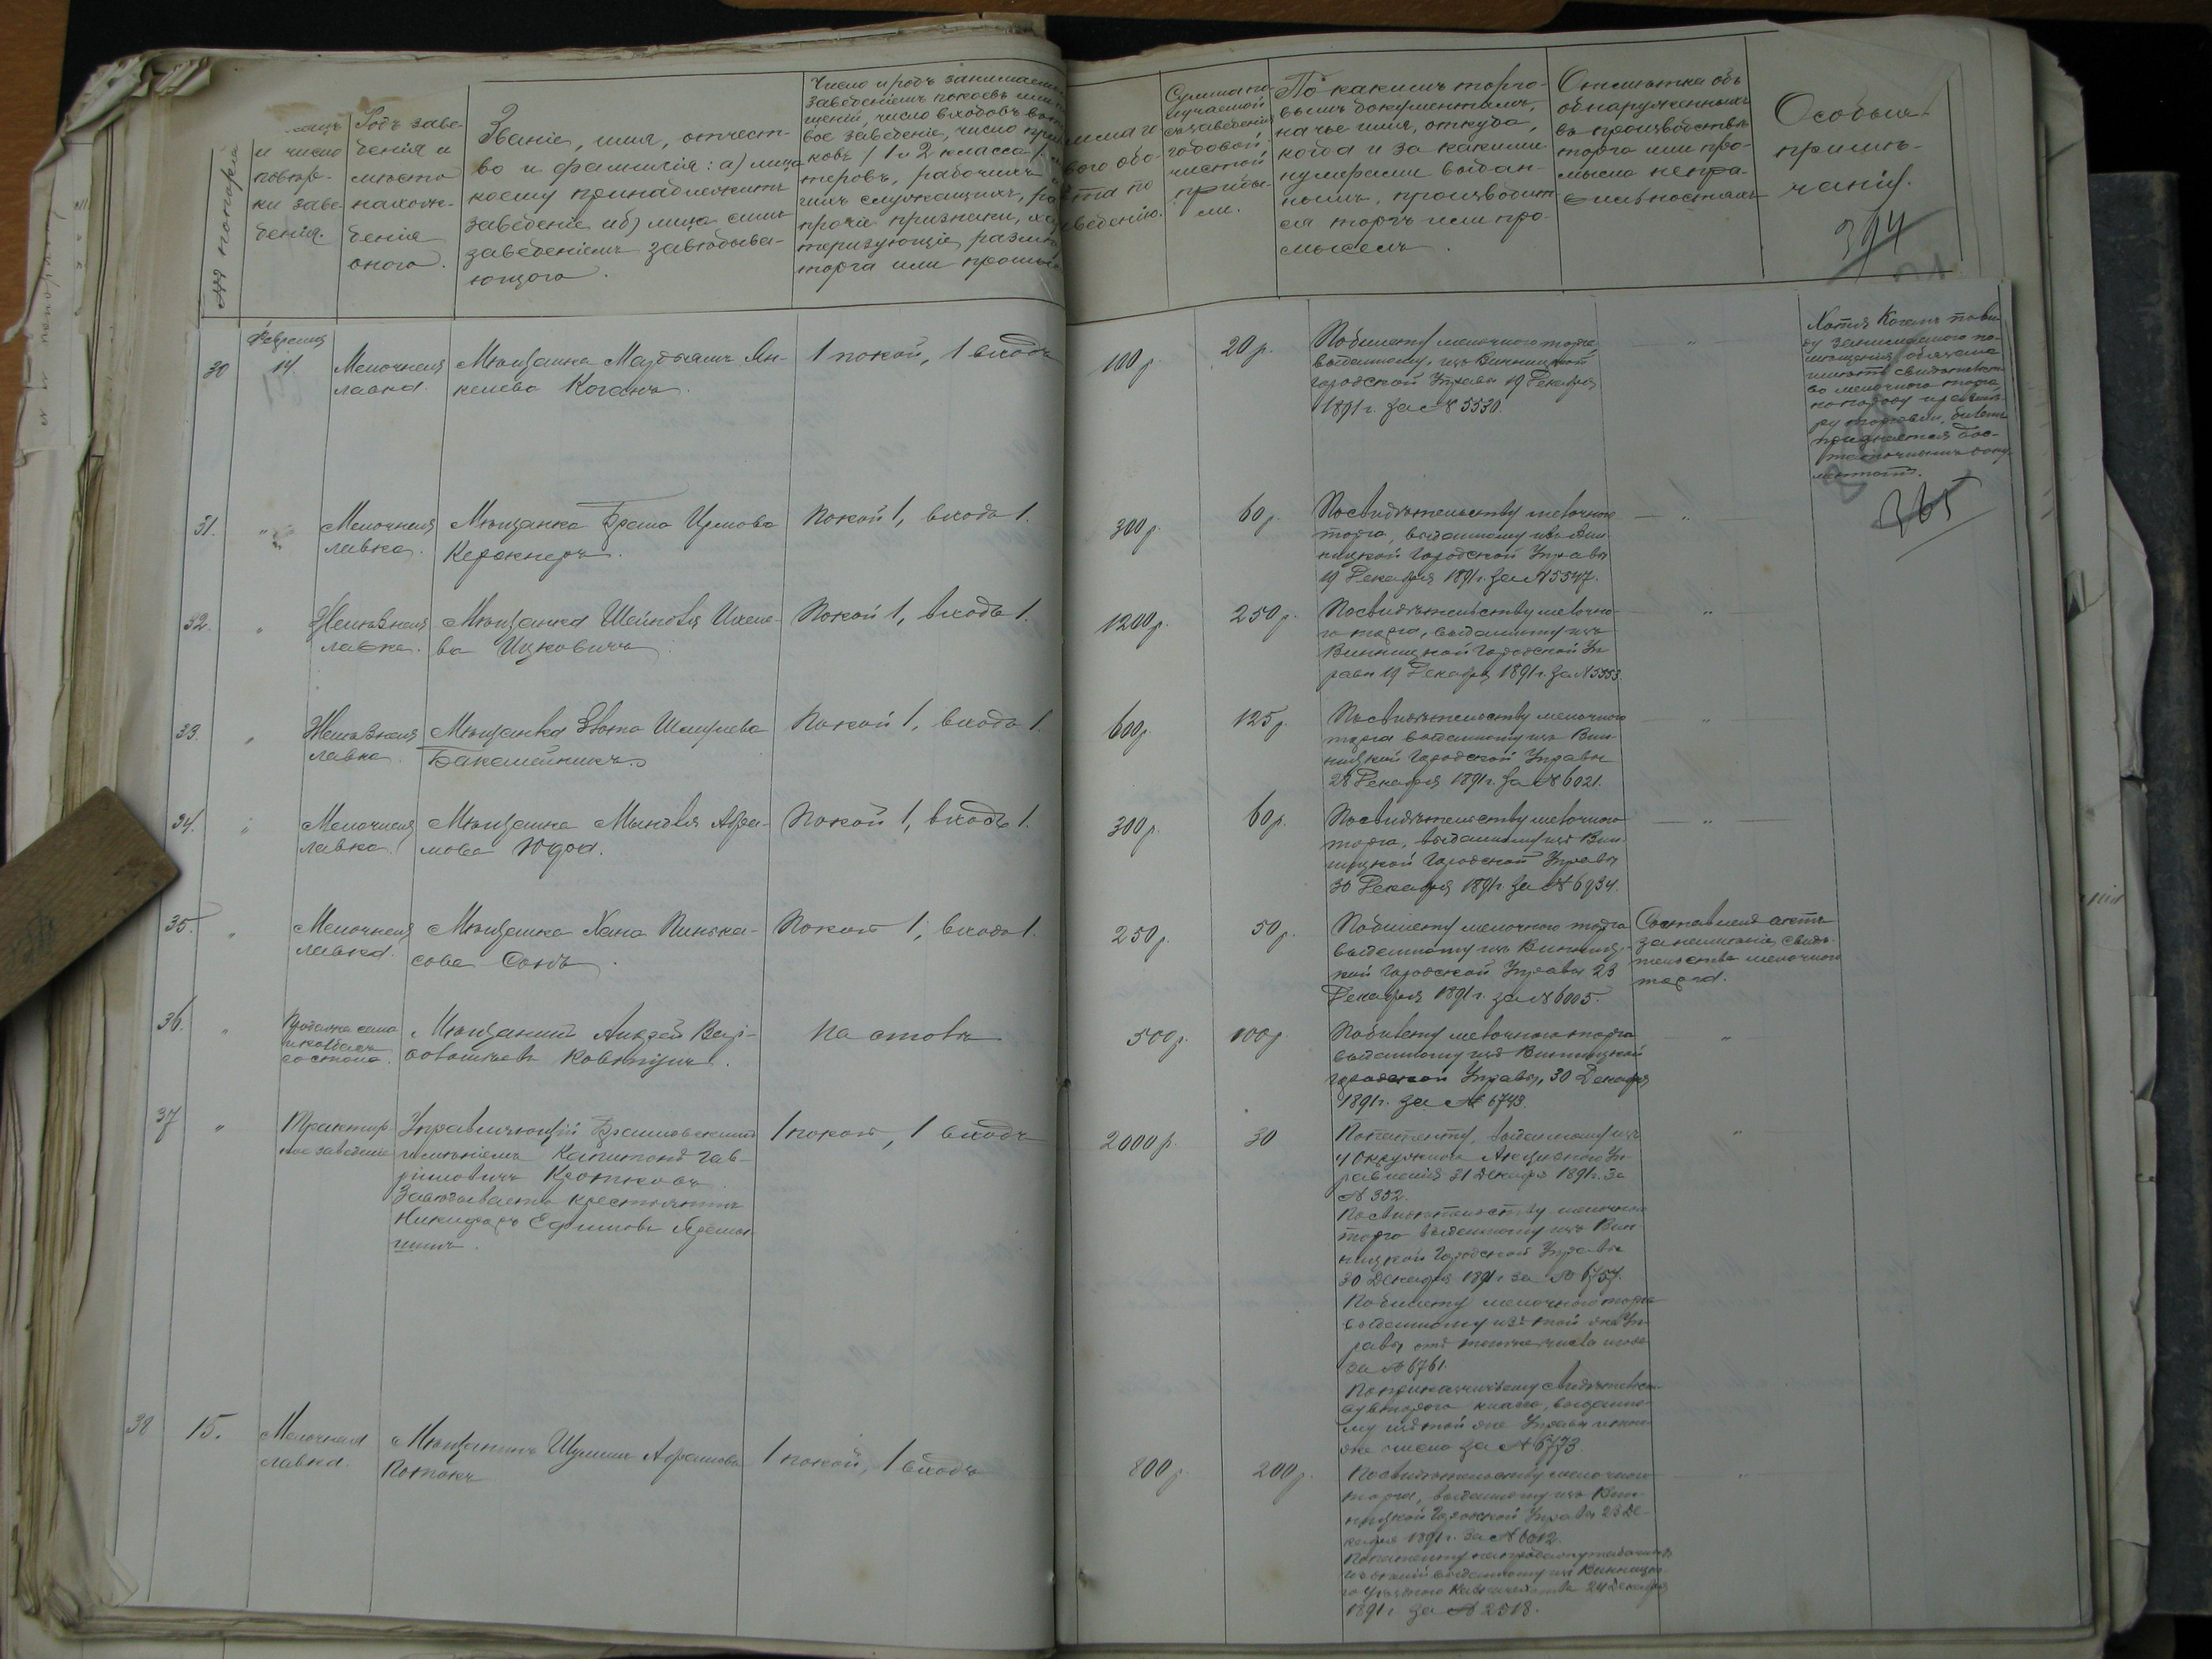 №№ по порядку
и число
повѣр-
ки заве-
денія.
Родъ заве-
денія и
мѣсто
нахож-
денія
онаго.
Званіе, имя, отчест-
во и фамилія: а) лица
коему принадлежитъ
заведеніе и б) лица симъ
заведеніемъ завѣдыва-
ющаго.
Число и родъ занимаем
заведеніемъ покоевъ или
щеній, число входовъ
вое заведеніе, число
ковъ / 1 и 2 класса /.
теровъ, рабочихъ
гихъ служащихъ,
прочіе признаки, ха
теризующіе размѣ
торга или промыс
вого обо-
та по
ведению.
Сумма по-
лучаемой
заведенія
годовой,
чистой
прибы-
ли.
По какимъ торго-
вымъ документамъ,
на чье имя, откуда,
когда и за какими
нумерами выдан-
нымъ, производит-
ся торгъ или про-
мыселъ.
Отмѣтка объ
обнаруженныхъ
въ производствѣ
торга или про-
мысла непра-
вильностяхъ
Особыя
примѣ-
чанія.
394
Февраля
30 14. Мелочная
лавка.
Мѣщанка Ян-
келева Коганъ.
1 покой, 1 входъ
100 р. 20 р.
По билету мелочного торга
выданному изъ Винницкой
Городской Управы 19 Декабря
1891 г. за № 5530.
— " —
Хотя Коганъ по ви-
ду занимаемаго по-
мѣщенія обязана
имѣть свидѣтельст-
во мелочного торга,
но по роду и размѣ-
ру торговли, билетъ
признается дос-
таточнымъ доку-
ментомъ.
365
31. " Мелочная
лавка.
Мѣщанка
1 покой 1, входъ 1.
300 р. 60 р.
По свидѣтельству мелочного
торга, выданному изъ Вин-
ницкой Городской Управы
19 Декабря 1891 г. за № 5547.
— " —
32. " Желѣзная
лавка.
Мѣщанка
ва Ицковичъ.
Покой 1, входъ 1.
1200 р. 250 р.
По свидѣтельству мелочно-
го торга, выданному изъ
Винницкой Городской Уп-
равы 19 Декабря 1891 г. за № 5553.
"
33. " Желѣзная
лавка.
Мѣщанка
Бакалейникъ.
Покой 1, входъ 1.
600 р. 125 р.
По свидѣтельству мелочного
торга выданному изъ Вин-
ницкой Городской Управы
28 Декабря 1891 г. за № 6021.
"
34. " Мелочная
лавка.
Мѣщанка Абра-
мова
Покой 1, входъ 1.
300 р. 60 р.
По свидѣтельству мелочного
торга, выданному изъ Вин-
ницкой Городской Управы
30 Декабря 1891 г. за № 6934.
— " —
35. " Мелочная
лавка.
Мѣщанка Хана Пинька-
сова
Покой 1, входъ 1.
250 р. 50 р.
По билету мелочного торга
выданному изъ Винниц-
кой Городской Управы 23
Декабря 1891 г. за № 6005.
Составленъ актъ
за неимѣніе свидѣ-
тельства мелочного
торга.
36. " Продажа сала
и колбасъ
со стола.
Мѣщанинъ Андрей
На столѣ
500 р. 100 р.
По билету мелочного торга
выданному изъ Винницкой
городской Управы, 30 Декабря
1891 г. за № 6743.
"
37 " Трактир-
ное заведеніе
Управляющій
имѣніемъ Капитонъ Гав-
риловичъ Кротковъ.
Завѣдываетъ крестьянинъ
Никифоръ Ефимовъ
1 покой, 1 входъ
2000 р. 30
По патенту, выданному изъ
4 Окружнаго Акцизнаго Уп-
равленія 31 Декабря 1891 г. за
№ 332.
По свидѣтельству мелочного
торга выданному изъ Вин-
ницкой Городской Управы
30 Декабря 1891 г. за № 6757.
По билету мелочного торга
выданному изъ той же Уп-
равы отъ того же числа
за № 6761.
По приказчичьему свидѣтельст-
ву второго класса, выданно-
му изъ той же Управы
же числа за № 6773.
"
38 15. Мелочная
лавка.
Мѣщанинъ Абрамовъ
Потокъ
1 покой, 1 входъ
800 р. 200 р.
По свидѣтельству мелочного
торга, выданному изъ Вин-
ницкой Городской Управы 23 Де-
кабря 1891 г. за № 6012.
По патенту на продажу табачныхъ
издѣлій выданному изъ Винницка-
го Уѣзднаго Казначейства 24 Декабря
1891 г. за № 2518.
"